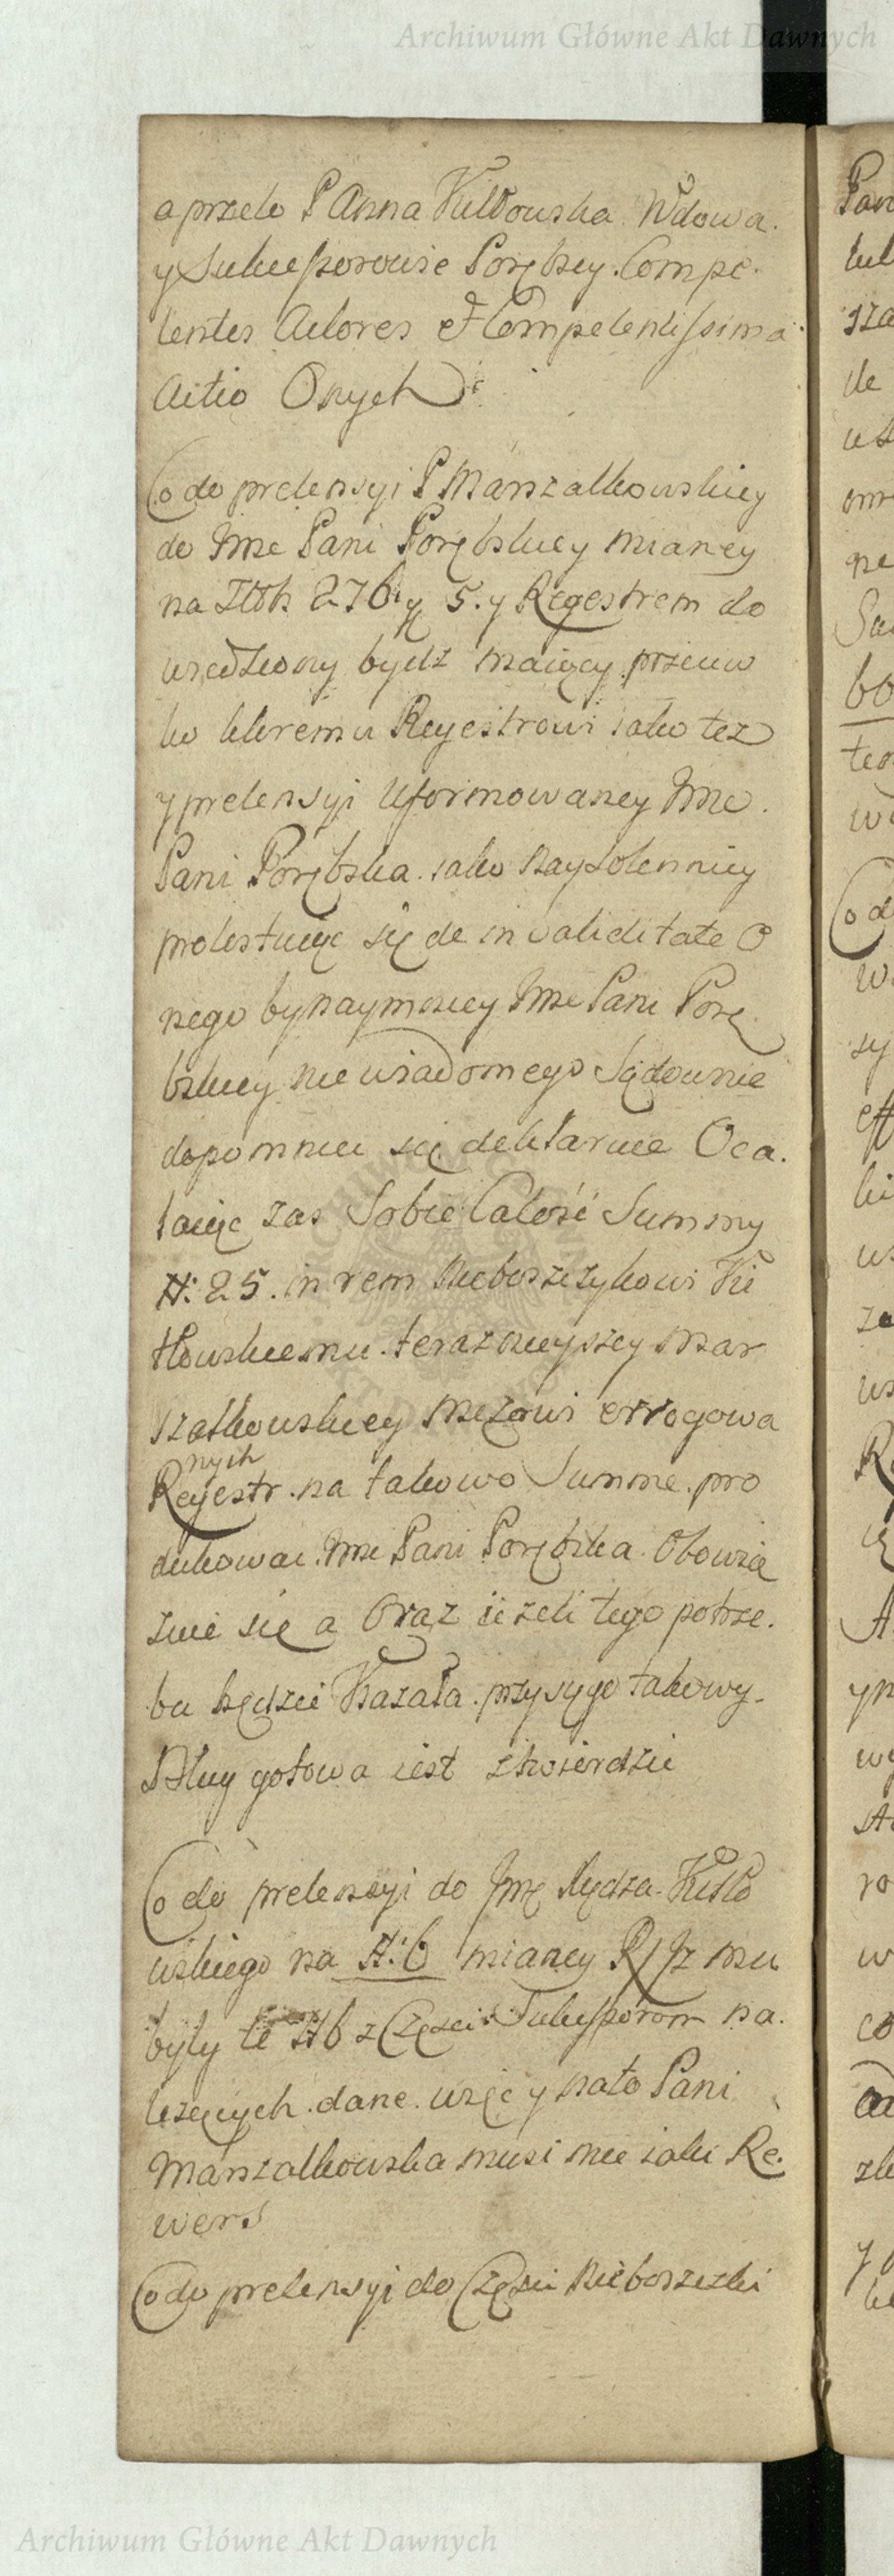 Archiwum Główne Akt Dawnych
a przeto P Anna Kitłowska Wdowa.
y Sukcessorowie Porębscy. Compe-
tentes Actores et Competentissima
Actio Onych
Co do pretensyi P Marszałkowskiey
do Jmc Pani Porębskiey mianey
na Złłch 276 y 5. y Regestrem do
wiedziony bydz maiący. przeciw
ko ktoremu Reyestrowi iako tez
y pretensyi Uformowaney Jmc.
Pani Porębska. iako naysolenniey
protestuiąc się de in validitate O
nego bynaymniey Jmc Pani Porę
bskiey nie wiadomego Sądownie
dopomniec się deklaruie Oca.
laiąc zas Sobie Całość Summy
#: 25. in rem Nieboszczykowi Ki
tłowskiemu. teraznieyszey Mar
szałkowskiey Mężowi errogowa
nych
Reyestr. na takowo Summe. pro
dukowac. Jmc Pani Porębska. Obowią
zuie się a Oraz iezeli tego potrze.
ba będzie Kazała. przysygo takowy
Dług gotowa iest ztwierdzic
Co do pretensyi do Jmę Xiędza Kitło
wskiego na #: 6 mianey
były te #6 z Częsci Sukcessorom na.
lezących. dane. więc y na to Pani
Marszałkowska musi miec iaki Re.
wers
Co do pretensyi do Częsci Nieboszczki
Pan
sza
de
one
Co d
Archiwum Główne Akt Dawnych